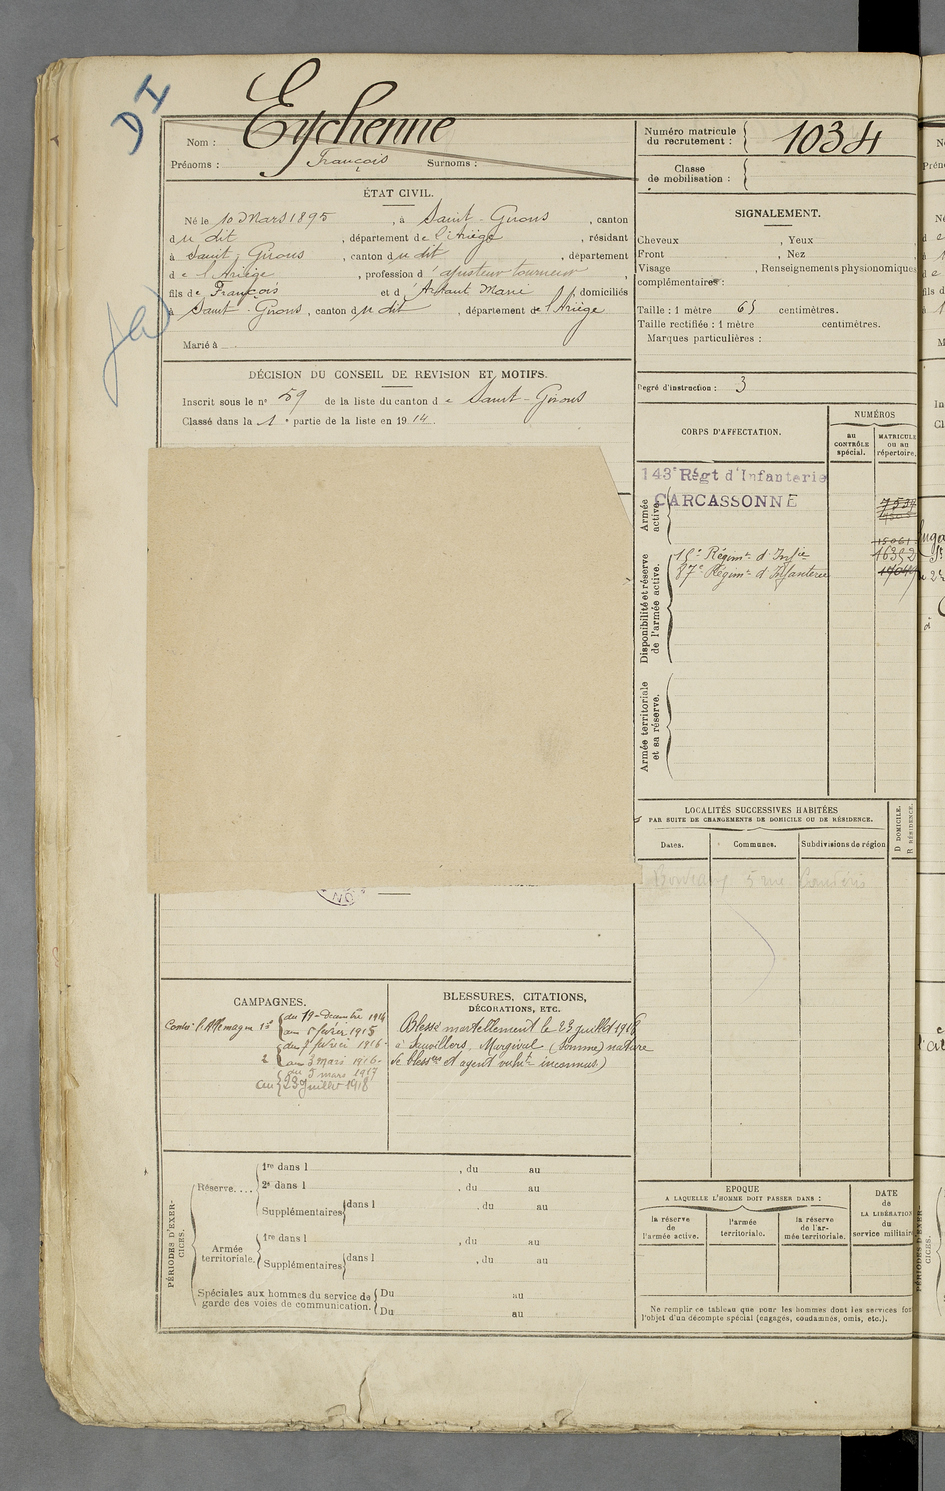 DI
Nom : Eychenne
Prénoms : François Surnoms :
ÉTAT CIVIL.
Né le 10 Mars 1895, à Saint-Girons, canton
du dit, département de l'Ariège, résidant
à Saint-Girons, canton du dit, département
de l'Ariège, profession d'ajusteur tourneur,
fils de François et d' Marie domiciliés
à Saint-Girons, canton du dit, département de l'Ariège
Marié à
DÉCISION DU CONSEIL DE REVISION ET MOTIFS.
Inscrit sous le n° 59 de la liste du canton de Saint-Girons
Classé dans la 1e partie de la liste en 1914.
CAMPAGNES.
Contre l'Allemagne 1° du 19 Décembre 1914
au 5 février 1915
du 7 février 1916
2 au 3 mars 1916
au 5 mars 1917
au 23 Juillet 1918
BLESSURES, CITATIONS,
DÉCORATIONS, ETC.
Blessé mortellement le 23 juillet 1918
à Sauvillers, Mongival (Somme) nature
de bless res et agent vulnt inconnus)
PÉRIODES D'EXERCICES.
Réserve.... 1re dans l , du au
2e dans l , du au
Supplémentaires dans l , du au
Armée territoriale. 1re dans l , du au
Supplémentaires dans l , du au
Spéciales aux hommes du service de garde des voies de communication. Du au
Du au
Numéro matricule du recrutement : 1034
Classe de mobilisation :
SIGNALEMENT.
Cheveux , Yeux
Front , Nez
Visage , Renseignements physionomiques
complémentaires :
Taille : 1 mètre 65 centimètres.
Taille rectifiée : 1 mètre centimètres.
Marques particulières :
Degré d'instruction : 3
CORPS D'AFFECTATION.
NUMÉROS
au CONTRÔLE spécial.
MATRICULE ou au répertoire.
Armée active.
143e Régt d'Infanterie
CARCASSONNE
Disponibilité et réserve de l'armée active.
15e Régimt d'Infie 16352
87e Régimt d'Infanterie
Armée territoriale et sa réserve.
LOCALITÉS SUCCESSIVES HABITÉES
PAR SUITE DE CHANGEMENTS DE DOMICILE OU DE RÉSIDENCE.
Dates. Communes. Subdivisions de région
D DOMICILE.
R RÉSIDENCE.
5 rue
EPOQUE
A LAQUELLE L'HOMME DOIT PASSER DANS :
la réserve de l'armée active.
l'armée territoriale.
la réserve de l'armée territoriale.
DATE de LA LIBÉRATION du service militaire
Ne remplir ce tableau que pour les hommes dont les services font
l'objet d'un décompte spécial (engagés, condamnés, omis, etc.).